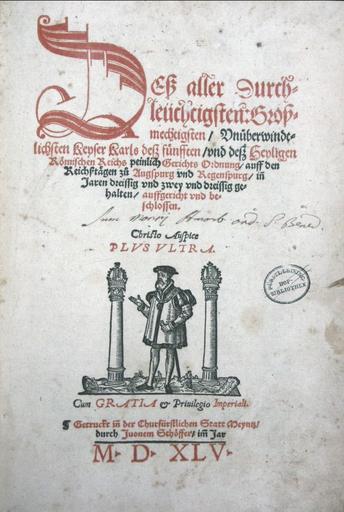 Deß aller Durch-
leüchtigsten: Groß-
mechtigsten / Vnüberwinde-
lichsten Keyser Karls deß fünfften / vnd deß Heyligen
Römischen Reichs peinlich Gerichts Ordnung / auff den
Reichßtägen zů Augspurg vnd Regenspurg / in
Jaren dreissig vnd zwey vnd dreissig ge-
halten / auffgericht vnd be-
schlossen.
Sum
Christo Auspice
PLVS VLTRA.
BIBLIOTHEK
Cum GRATIA & Priuilegio Imperiali.
¶ Getruckt in der Churfürstlichen Statt Meyntz /
durch Juonem Schöffer / im Jar
M. D. XLV.